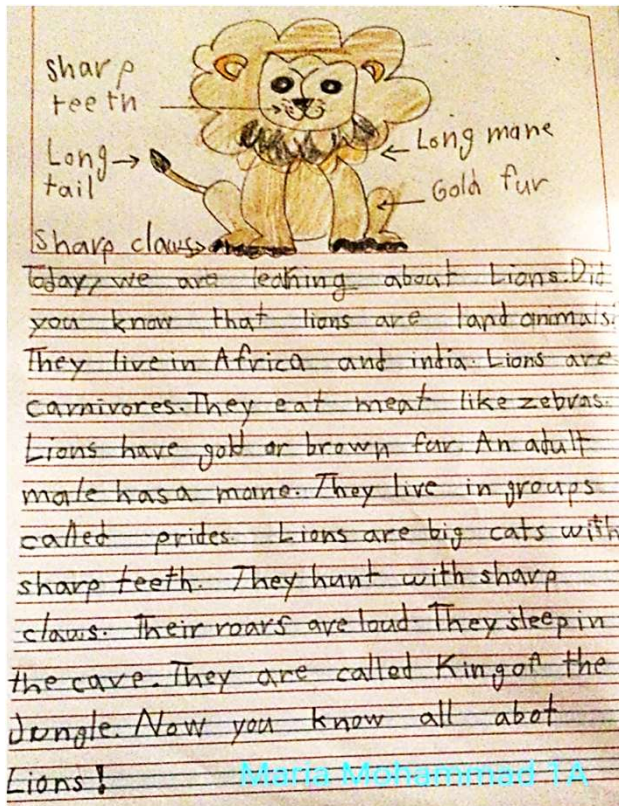 sharp
teeth
Long
tail
Long mane
Gold fur
Sharp claws
Today, we are leaning about Lions. Did
you know that lions are land animals?
They live in Africa and india. Lions are
carnivores. They eat meat like zebras.
Lions have gold or brown fur. An adult
male has a mane. They live in groups
called prides. Lions are big cats with
sharp teeth. They hunt with sharp
claws. Their roars are loud. They sleep in
the cave. They are called King of the
Jungle. Now you know all abot
Lions!
Maria Mohammad 1A